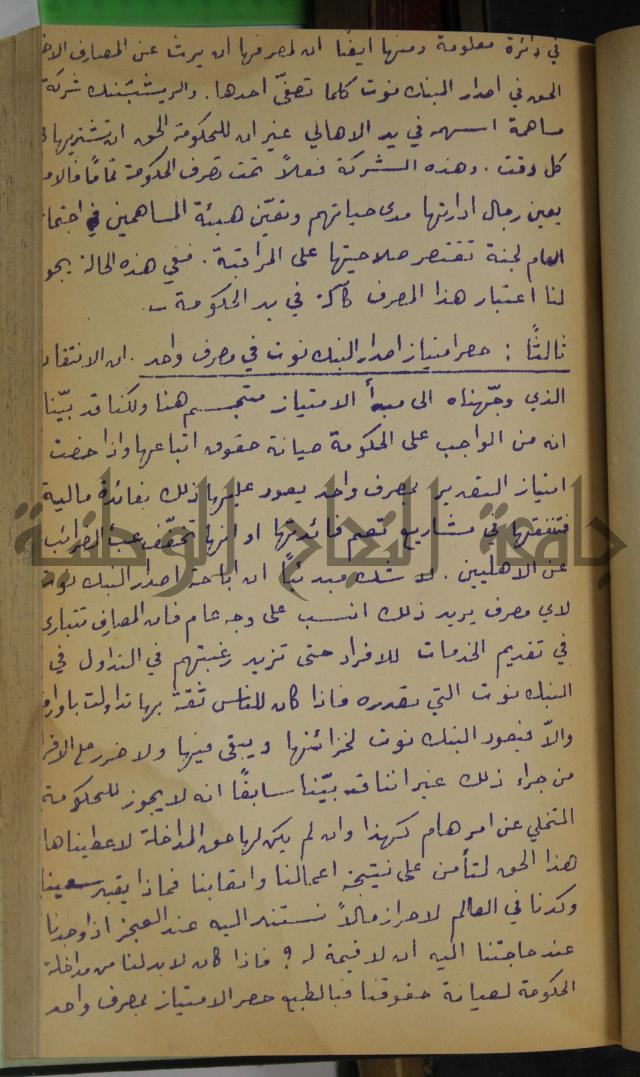 في دائرة معلومة ومنها ايضًا ان لمصرفها ان يرث عن المصارف الاخ
الحق في اصدار البنك نوت كلما تصفّى احدها. والريشتبنك شركة
مساهمة اسهمه في يد الاهالي غير ان للحكومة الحق ان تشتريها في
كل وقت. وهذه الشركة فعلاً تحت تصرف الحكومة تمامًا فالام
يعين رجال ادارتها مدى حياتهم وتعيّن هيئة المساهمين في اجتما
العام لجنة تقتصر صلاحيتها على المراقبة. ففي هذه الحالة يجو
لنا اعتبار هذا المصرف كآلة في يد الحكومة
ثالثًا : حصر امتياز اصدار البنك نوت في مصرف واحد. ان الانتقاد
الذي وجّهناه الى مبدأ الامتياز متجسم هنا ولكنا قد بيّنا
انه من الواجب على الحكومة صيانة حقوق اتباعها واذا خصت
امتياز التصدير بمصرف واحد يعود عليها ذلك بفائدة مالية
فتنفقها في مشاريع تعم فائدتها او انها تخفّف عبء الضرائب
عن الاهليين. لا شك مبدئيًا ان اباحة اصدار البنك نوت
لاي مصرف يريد ذلك انسب على وجه عام فان المصارف تتبارى
في تقديم الخدمات للافراد حتى تزيد رغبتهم في التداول في
البنك نوت التي تصدره فاذا كان للناس ثقة بها تداولت باورا
والاّ فيعود البنك نوت لخزائنها ويبقى فيها ولا ضرر على الافر
من جراء ذلك غير اننا قد بيّنا سابقًا انه لا يجوز للحكومة
التخلي عن امر هام كهذا وان لم يكن لها حق المداخلة لاعطيناها
هذا الحق لتأمن على نتيجة اعمالنا واتعابنا فماذا يفيد سعينا
وكدنا في العالم لاحراز مالاً نستند اليه عند العجز اذا وجدنا
عند حاجتنا اليه ان لا قيمة له ؟ فاذا كان لا بد لنا من مداخلة
الحكومة لصيانة حقوقنا فبالطبع حصر الامتياز بمصرف واحد
جامعة النجاح الوطنية